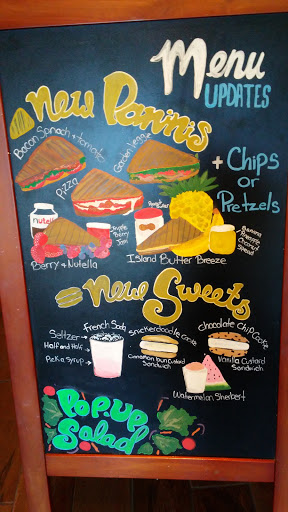 Menu
UPDATES
New Paninis
Bacon Spinach + Tomato
Garden Veggie
Pizza
+ Chips
or
Pretzels
nutella
Triple
Berry
Jam
Banana
Pineapple
Coconut
Spread
Berry + Nutella
Island Butter Breeze
New Sweets
French Soda
Seltzer
Half and Half
ReKa Syrup
Snickerdoodle Cookie
Cinnamon Bun Custard
Sandwich
Chocolate Chip Cookie
Vanilla Custard
Sandwich
Watermelon Sherbert
Pop.Up
Salad